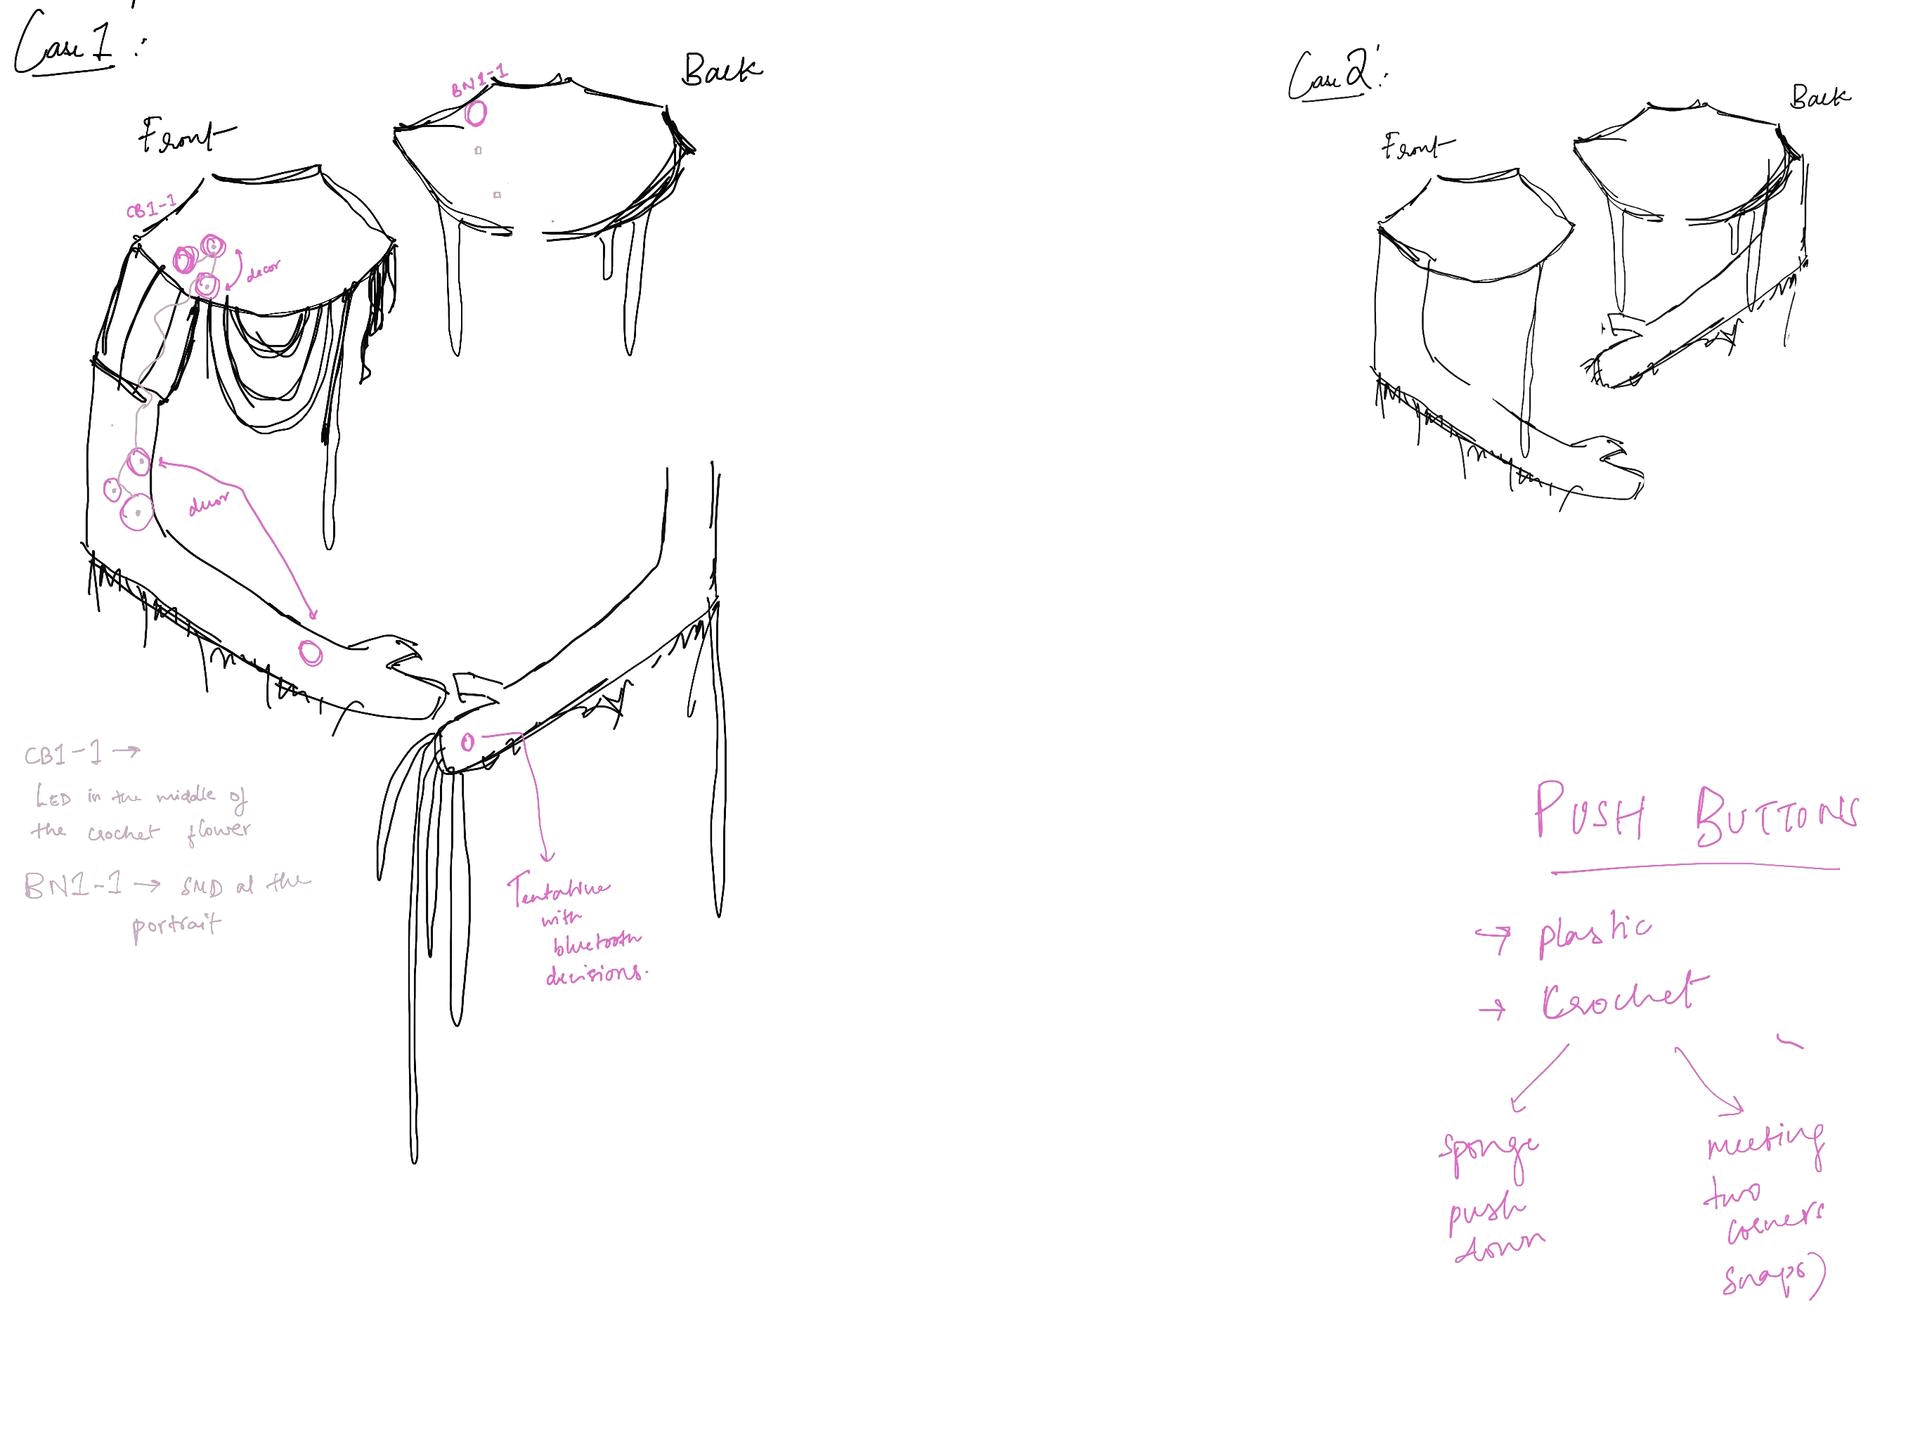 Case 1 :
Front
Back
CB1-1
BN1-1
decor
decor
CB1-1 →
LED in the middle of
the crochet flower
BN1-1 → SMD at the
portrait
Tentative
with
bluetooth
decisions.
Case 2 :
Front
Back
PUSH BUTTONS
→ plastic
→ Crochet
sponge
push
down
meeting
two
corners
snaps)